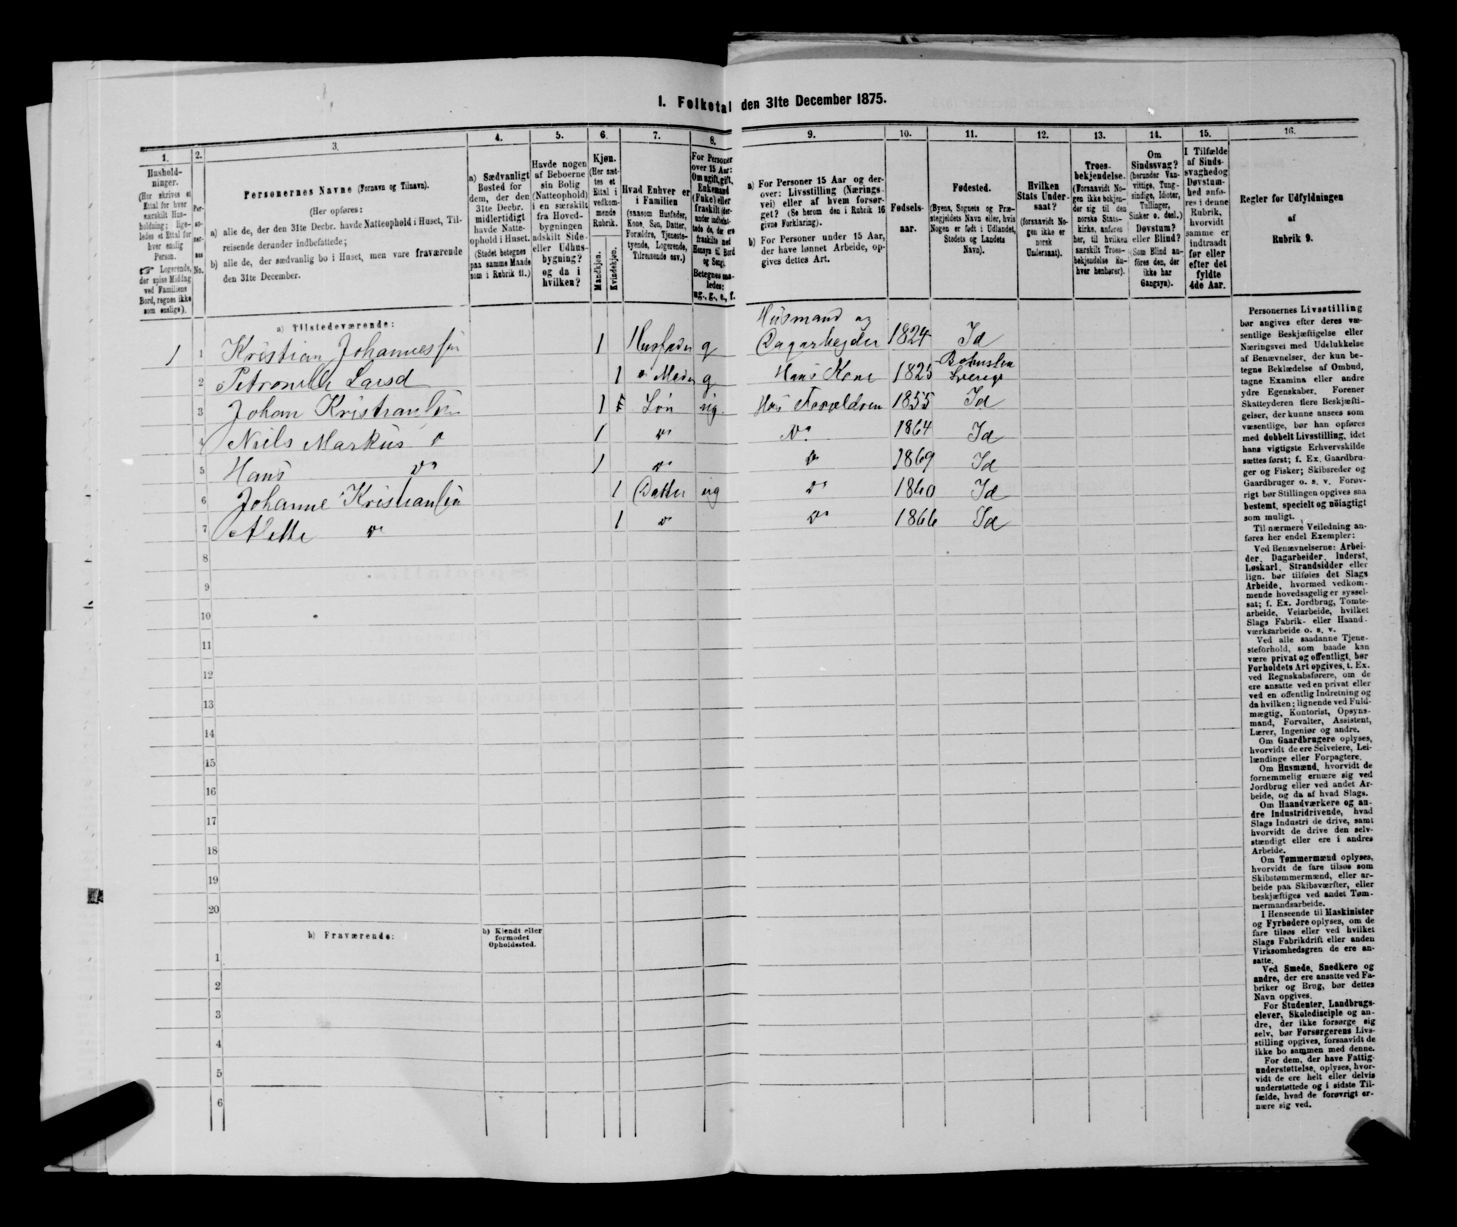 I. Folketal den 31te December 1875.
1.
2.
3.
4.
5.
6.
7.
8.
9.
10.
11.
12.
13.
14.
15.
16.
Hushold-
ninger.
(Her skrives et
Ettal for hver
særskilt Hus-
holdning; lige-
ledes et Ettal for
hver enslig
Person.
☞ Logerende,
der spise Middag
ved Familiens
Bord, regnes ikke
som enslige).
Personernes Navne (Fornavn og Tilnavn).
(Her opføres:
a) alle de, der den 31te Decbr. havde Natteophold i Huset, Til-
reisende derunder indbefattede;
b) alle de, der sædvanlig bo i Huset, men vare fraværende
den 31te December.
a) Sædvanligt
Bosted for
dem, der den
31te Decbr.
midlertidigt
havde Natte-
ophold i Huset.
(Stedet betegnes
paa samme Maade
som i Rubrik 11.)
Havde nogen
af Beboerne
sin Bolig
(Natteophold)
i en særskilt
fra Hoved-
bygningen
adskilt Side-
eller Udhus-
bygning?
og da i
hvilken?
Kjøn.
(Her sæt-
tes et
Ettal i
vedkom-
mende
Rubrik.
Mandkjøn.
Kvindekjøn.
Hvad Enhver er
i Familien
(saasom Husfader,
Kone, Søn, Datter,
Forældre, Tjeneste-
tyende, Logerende,
Tilreisende osv.)
For Personer
over 15 Aar:
Om ugift, gift,
Enkemand
(Enke) eller
fraskilt
Betegnes saa-
ledes:
ug., g., e., f.
a) For Personer 15 Aar og der-
over: Livsstilling (Nærings-
vei) eller af hvem forsør-
get? (Se herom den i Rubrik 16
givne Forklaring).
b) For Personer under 15 Aar,
der have lønnet Arbeide, op-
gives dettes Art.
Fødsels-
aar.
Fødested.
(Byens, Sognets og Præ-
stegjeldets Navn eller, hvis
Nogen er født i Udlandet,
Stedets og Landets
Navn).
Hvilken
Stats Under-
saat?
(forsaavidt No-
gen ikke er
norsk
Undersaat).
Troes-
bekjendelse.
(Forsaavidt No-
gen ikke bekjen-
der sig til den
norske Stats-
kirke, anføres
her, til hvilken
særskilt Troes-
bekjendelse En-
hver henhører).
Om
Sindssvag?
(herunder Van-
vittige, Tung-
sindige, Idioter,
Tullinger,
Sinker o. desl.)
Døvstum?
eller Blind?
(Som Blind an-
føres den, der
ikke har
Gangsyn).
I Tilfælde
af Sinds-
svaghed og
Døvstum-
hed anfø-
res i denne
Rubrik,
hvorvidt
samme er
indtraadt
før eller
efter det
fyldte
4de Aar.
Regler for Udfyldningen
af
Rubrik 9.
a) Tilstedeværende:
1 1 Kristian Johannessen 1 Husfader g Husmand og Dagarbejder 1824 Id
2 Petronille Larsd 1 " Moder g Hans Kone 1825 Bohuslen Sverige
3 Johan Kristiansen 1 Søn ug Hos Forældren 1855 Id
4 Niels Markus do 1 do do 1864 Id
5 Hans do 1 do do 1869 Id
6 Johanne Kristiansen 1 Datter ug do 1860 Id
7 Alette do 1 do do 1866 Id
8
9
10
11
12
13
14
15
16
17
18
19
20
b) Fraværende:
b) Kjendt eller
formodet
Opholdssted.
1
2
3
4
5
6
Personernes Livsstilling
bør angives efter deres væ-
sentlige Beskjæftigelse eller
Næringsvei med Udelukkelse
af Benævnelser, der kun be-
tegne Beklædelse af Ombud,
tagne Examina eller andre
ydre Egenskaber. Forener
Skatteyderen flere Beskjæfti-
gelser, der kunne ansees som
væsentlige, bør han opføres
med dobbelt Livsstilling, idet
hans vigtigste Erhvervskilde
sættes først; f. Ex. Gaardbru-
ger og Fisker; Skibsreder og
Gaardbruger o. s. v. Forøv-
rigt bør Stillingen opgives saa
bestemt, specielt og nøiagtigt
som muligt.
Til nærmere Veiledning an-
føres her endel Exempler:
Ved Benævnelserne: Arbei-
der, Dagarbeider, Inderst,
Løskarl, Strandsidder eller
lign. bør tilføies det Slags
Arbeide, hvormed vedkom-
mende hovedsagelig er syssel-
sat; f. Ex. Jordbrug, Tomte-
arbeide, Veiarbeide, hvilket
Slags Fabrik- eller Haand-
værksarbeide o. s. v.
Ved alle saadanne Tjene-
steforhold, som baade kan
være privat og offentligt, bør
Forholdets Art opgives, t. Ex.
ved Regnskabsførere, om de
ere ansatte ved en privat eller
ved en offentlig Indretning og
da hvilken; lignende ved Fuld-
mægtig, Kontorist, Opsyns-
mand, Forvalter, Assistent,
Lærer, Ingeniør og andre.
Om Gaardbrugere oplyses,
hvorvidt de ere Selveiere, Lei-
lændinge eller Forpagtere.
Om Husmænd, hvorvidt de
fornemmelig ernære sig ved
Jordbrug eller ved andet Ar-
beide, og da af hvad Slags.
Om Haandværkere og an-
dre Industridrivende, hvad
Slags Industri de drive, samt
hvorvidt de drive den selv-
stændigt eller ere i andres
Arbeide.
Om Tømmermænd oplyses,
hvorvidt de fare tilsøs som
Skibstømmermænd, eller ar-
beide paa Skibsværfter, eller
beskjæftiges ved andet Tøm-
mermandsarbeide.
I Henseende til Maskinister
og Fyrbødere oplyses, om de
fare tilsøs eller ved hvilket
Slags Fabrikdrift eller anden
Virksomhedsgren de ere an-
satte.
Ved Smede, Snedkere og
andre, der ere ansatte ved Fa-
briker og Brug, bør dettes
Navn opgives.
For Studenter, Landbrugs-
elever, Skoledisciple og an-
dre, der ikke forsørge sig
selv, bør Forsørgerens Livs-
stilling opgives, forsaavidt de
ikke bo sammen med denne.
For dem, der have Fattig-
understøttelse, oplyses, hvor-
vidt de ere helt eller delvis
understøttede og i sidste Til-
fælde, hvad de forøvrigt er-
nære sig ved.